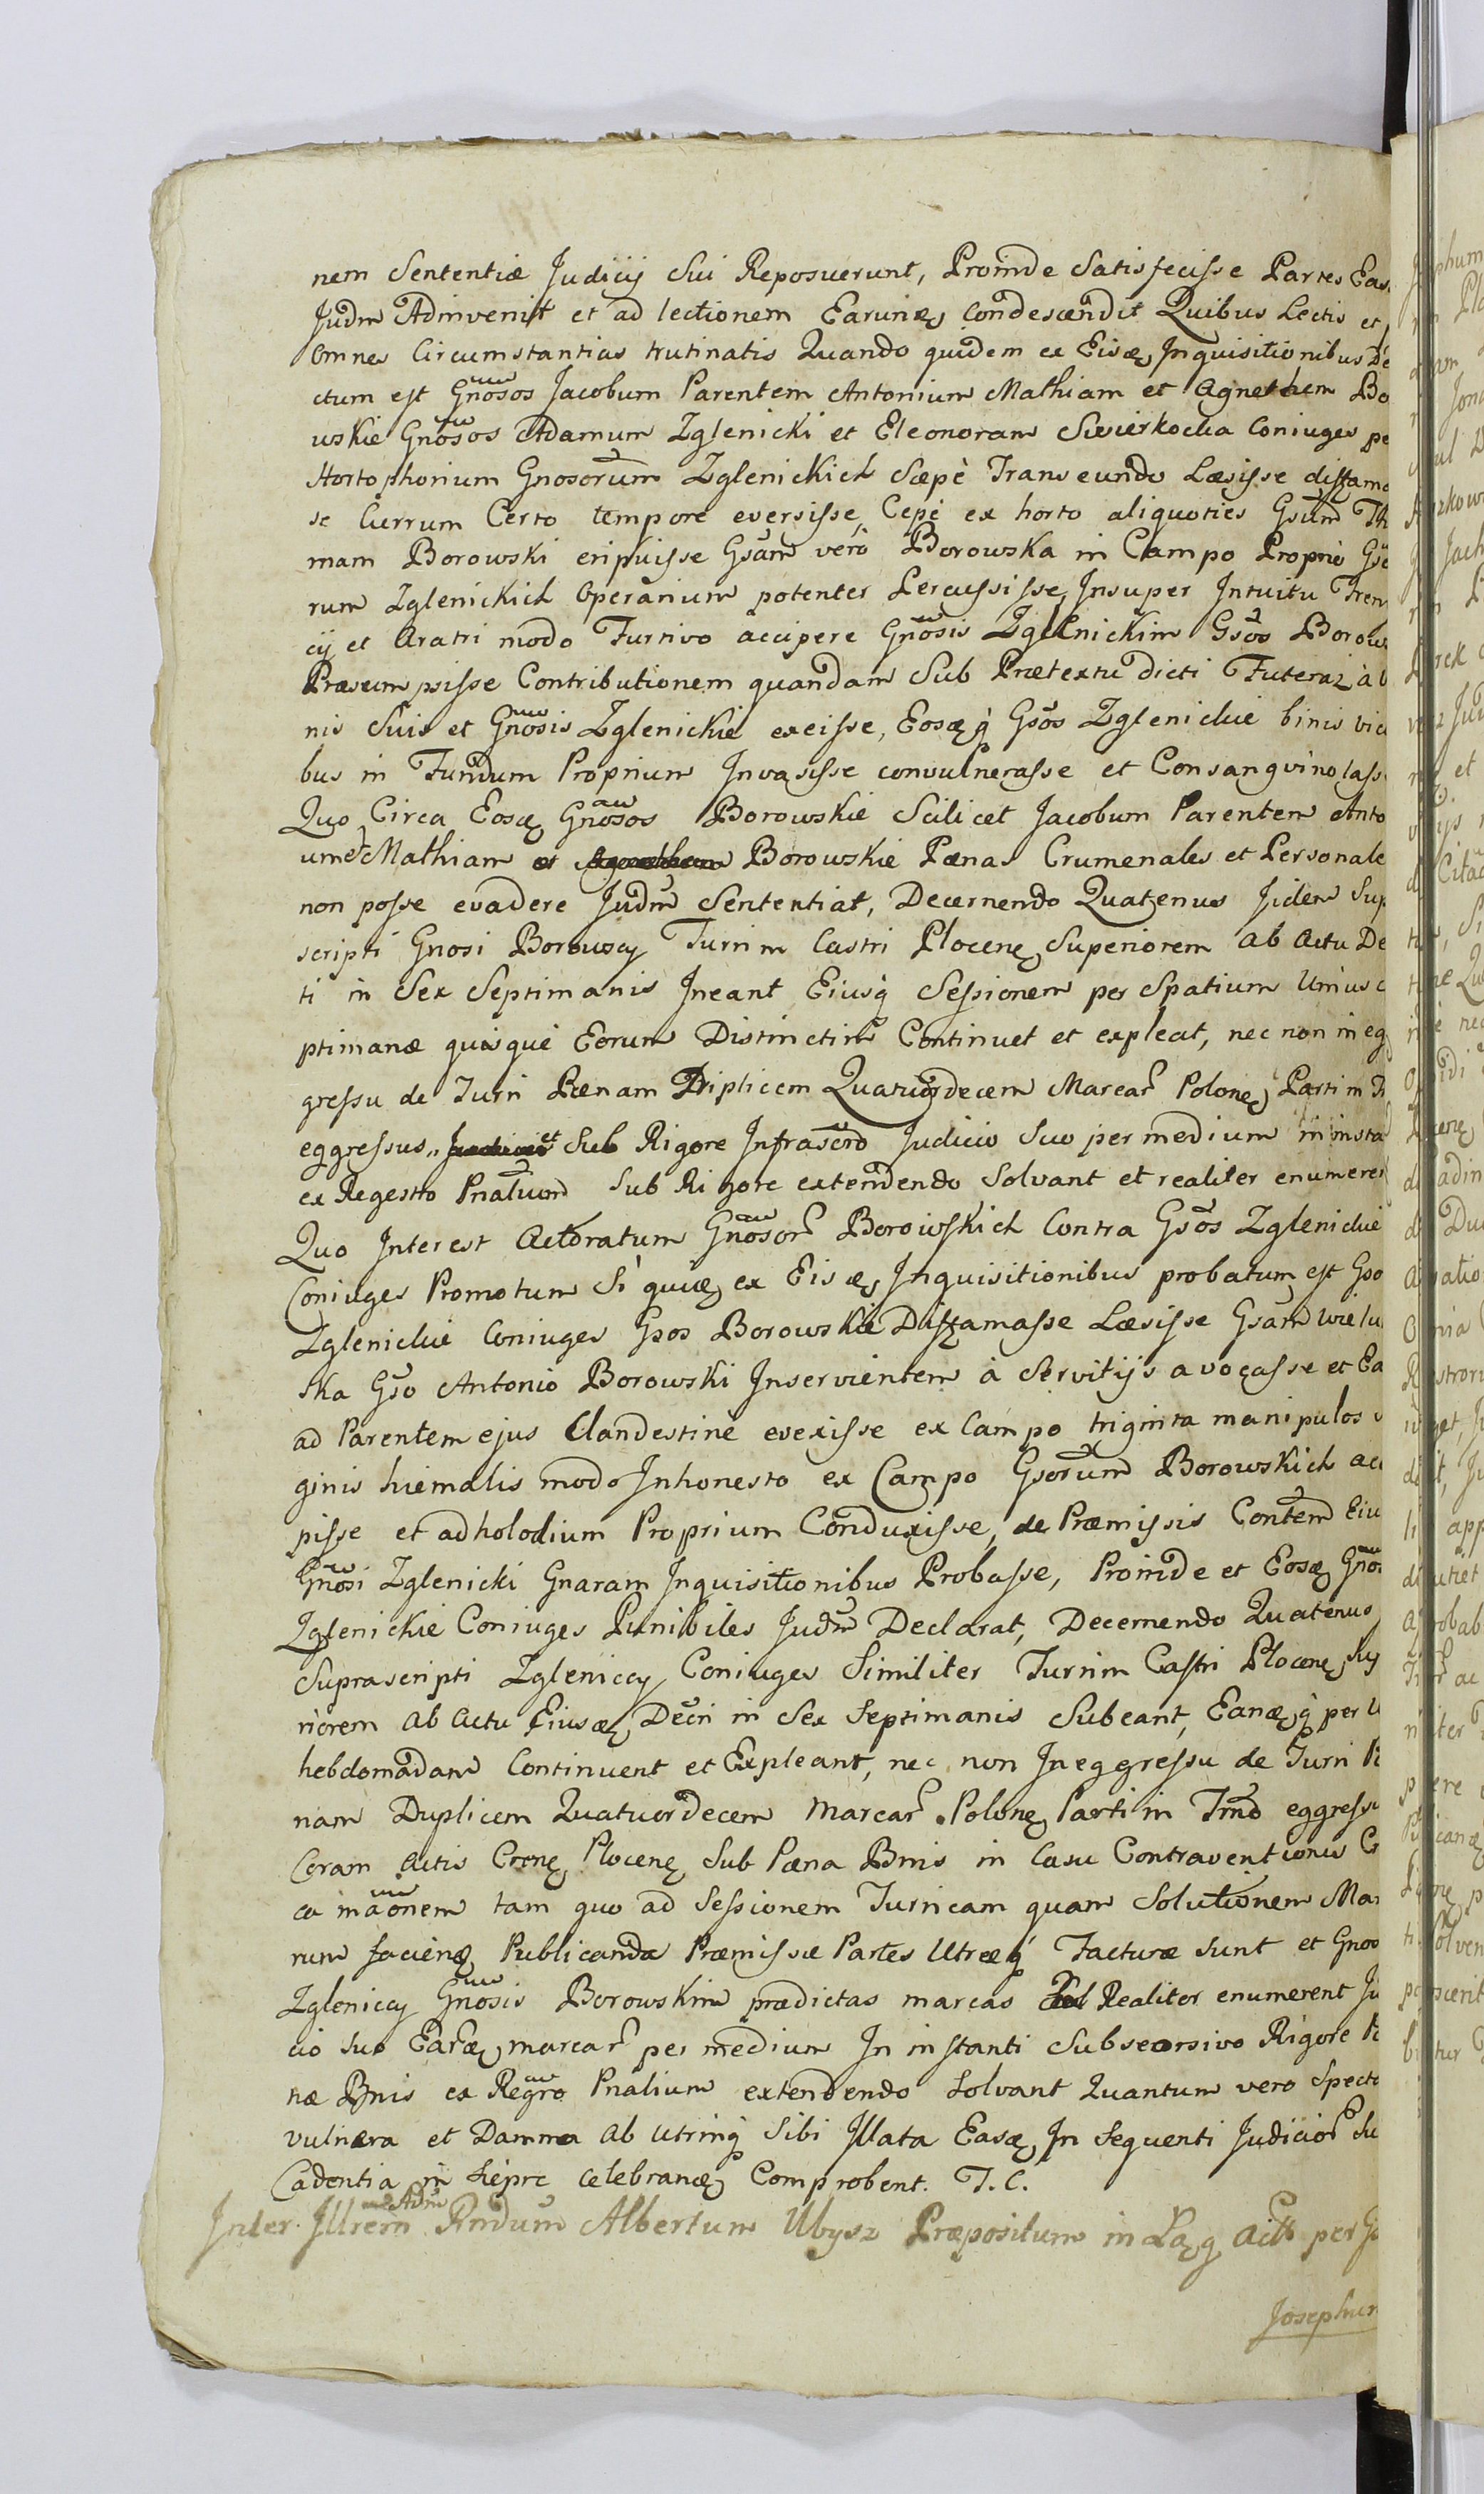 nem Sententiæ Judicij Sui Reposuerunt, Proinde Satisfecisse Partes Eas
Judm Adinvenit et ad lectionem Earundę condescendit Quibus Lectis et
Omnes Circumstantias trutinatis Quando quidem ex Eisdę Inquisitionibus De
ctum est Gnosos Jacobum Parentem Antonium Mathiam et Agnethem Bo
wskie Gnosos Adamum Zglenicki et Eleonoram Swierkocka Coniuges pe
Horto phonium Gnosorum Zglenickich Sæpè Transeundo Læsisse diffama
se Currum Certo tempore eversisse, Cepe ex horto aliquoties Gsum Th
mam Borowski eripuisse Gsam verò Borowska in Campo Proprio Gso
rum Zglenickich Operarium potenter Percussisse, Insuper Intuitu Fren
cij et Aratri modo Furtivo accipere Gnosis Zglenickim Gsos Borow
Præsumpsisse Contributionem quandam Sub Prætextu dicti Futeraz à b
nis Suis et Gnosis Zglenickie exeisse, Eosdęq Gsos Zglenickie binis vici
bus in Fundum Proprium Invasisse convulnerasse et Consangvinolass
Quo Circa Eosdę Gnosos Borowskie Scilicet Jacobum Parentem Anto
um et Mathiam Borowskie Pænas Crumenales et Personale
non posse evadere Judm Sententiat, Decernendo Quatenus Jidem Sup
scripti Gnosi Borowscy Turrim Castri Plocenę Superiorem ab Actu De
ti in Sex Septimanis Ineant Eiusq Sessionem per Spatium Unius
ptimanæ quisque Eorum Distinctim Continuet et expleat, nec non in eg
gressu de Turri Pænam Triplicem Quatuordecem Marcar Polonę Parti in
eggressus et Sub Rigore Infrascro Judicio Suo per medium in insta
ex Regestro Pnalium Sub Rigore extendendo Solvant et realiter enumere
Quo Interest Actoratum Gnosor Borowskich Contra Gsos Zglenickie
Coniuges Promotum Si quidę ex Eisdę Inquisitionibus probatum est Gso
Zglenickie Coniuges Gsos Borowskie Diffamasse Læsisse Gsam Wielu
ska Gso Antonio Borowski Inservientem à Servitijs avocasse et Ea
ad Parentem ejus Clandestine evexisse ex Campo triginta manipulos
ginis hiemalis modo Inhonesto ex Campo Gsorum Borowskich acc
pisse et ad holodium Proprium Conduxisse, de Præmissis Contem Eiu
Gnosi Zglenicki Gnaram Inquisitionibus Probasse, Proinde et Eosdę Gnos
Zglenickie Coniuges Punibiles Judm Declarat, Decernendo Quatenus
Suprascripti Zgleniccy Coniuges Similiter Turrim Castri Plocenę Sup
riorem ab Actu Eiusdę Decri in Sex Septimanis Subeant, Eandęq per U
hebdomadam Continuent et Expleant, nec non In eggressu de Turri Pæ
nam Duplicem Quatuordecem Marcar Polonę Parti in Trmo eggressu
Coram Actis Plocenę Sub Pæna Bnis in Casu Contraventionis
ca maonem tam quo ad Sessionem Turricam quam Solutionem Mar
rum faciendę Publicanda Præmissæ Partes Utræq Facturæ sunt et Gnos
Zgleniccy Gnosis Borowskim prædictas marcas Realiter enumerent
cio suo Earundę marcar per medium In instanti Subseorsivo Rigore Pæ
næ Bnis ex Regro Pnalium extendendo Solvant Quantum vero Spect
vulnera et Damna ab utrinq Sibi Illata Easdę In Sequenti Judicior Su
Cadentia in celebrandę Comprobent. T. C.
Inter Illrem Adm Rndum Albertum Ubysz Præpositum in per
Josephum